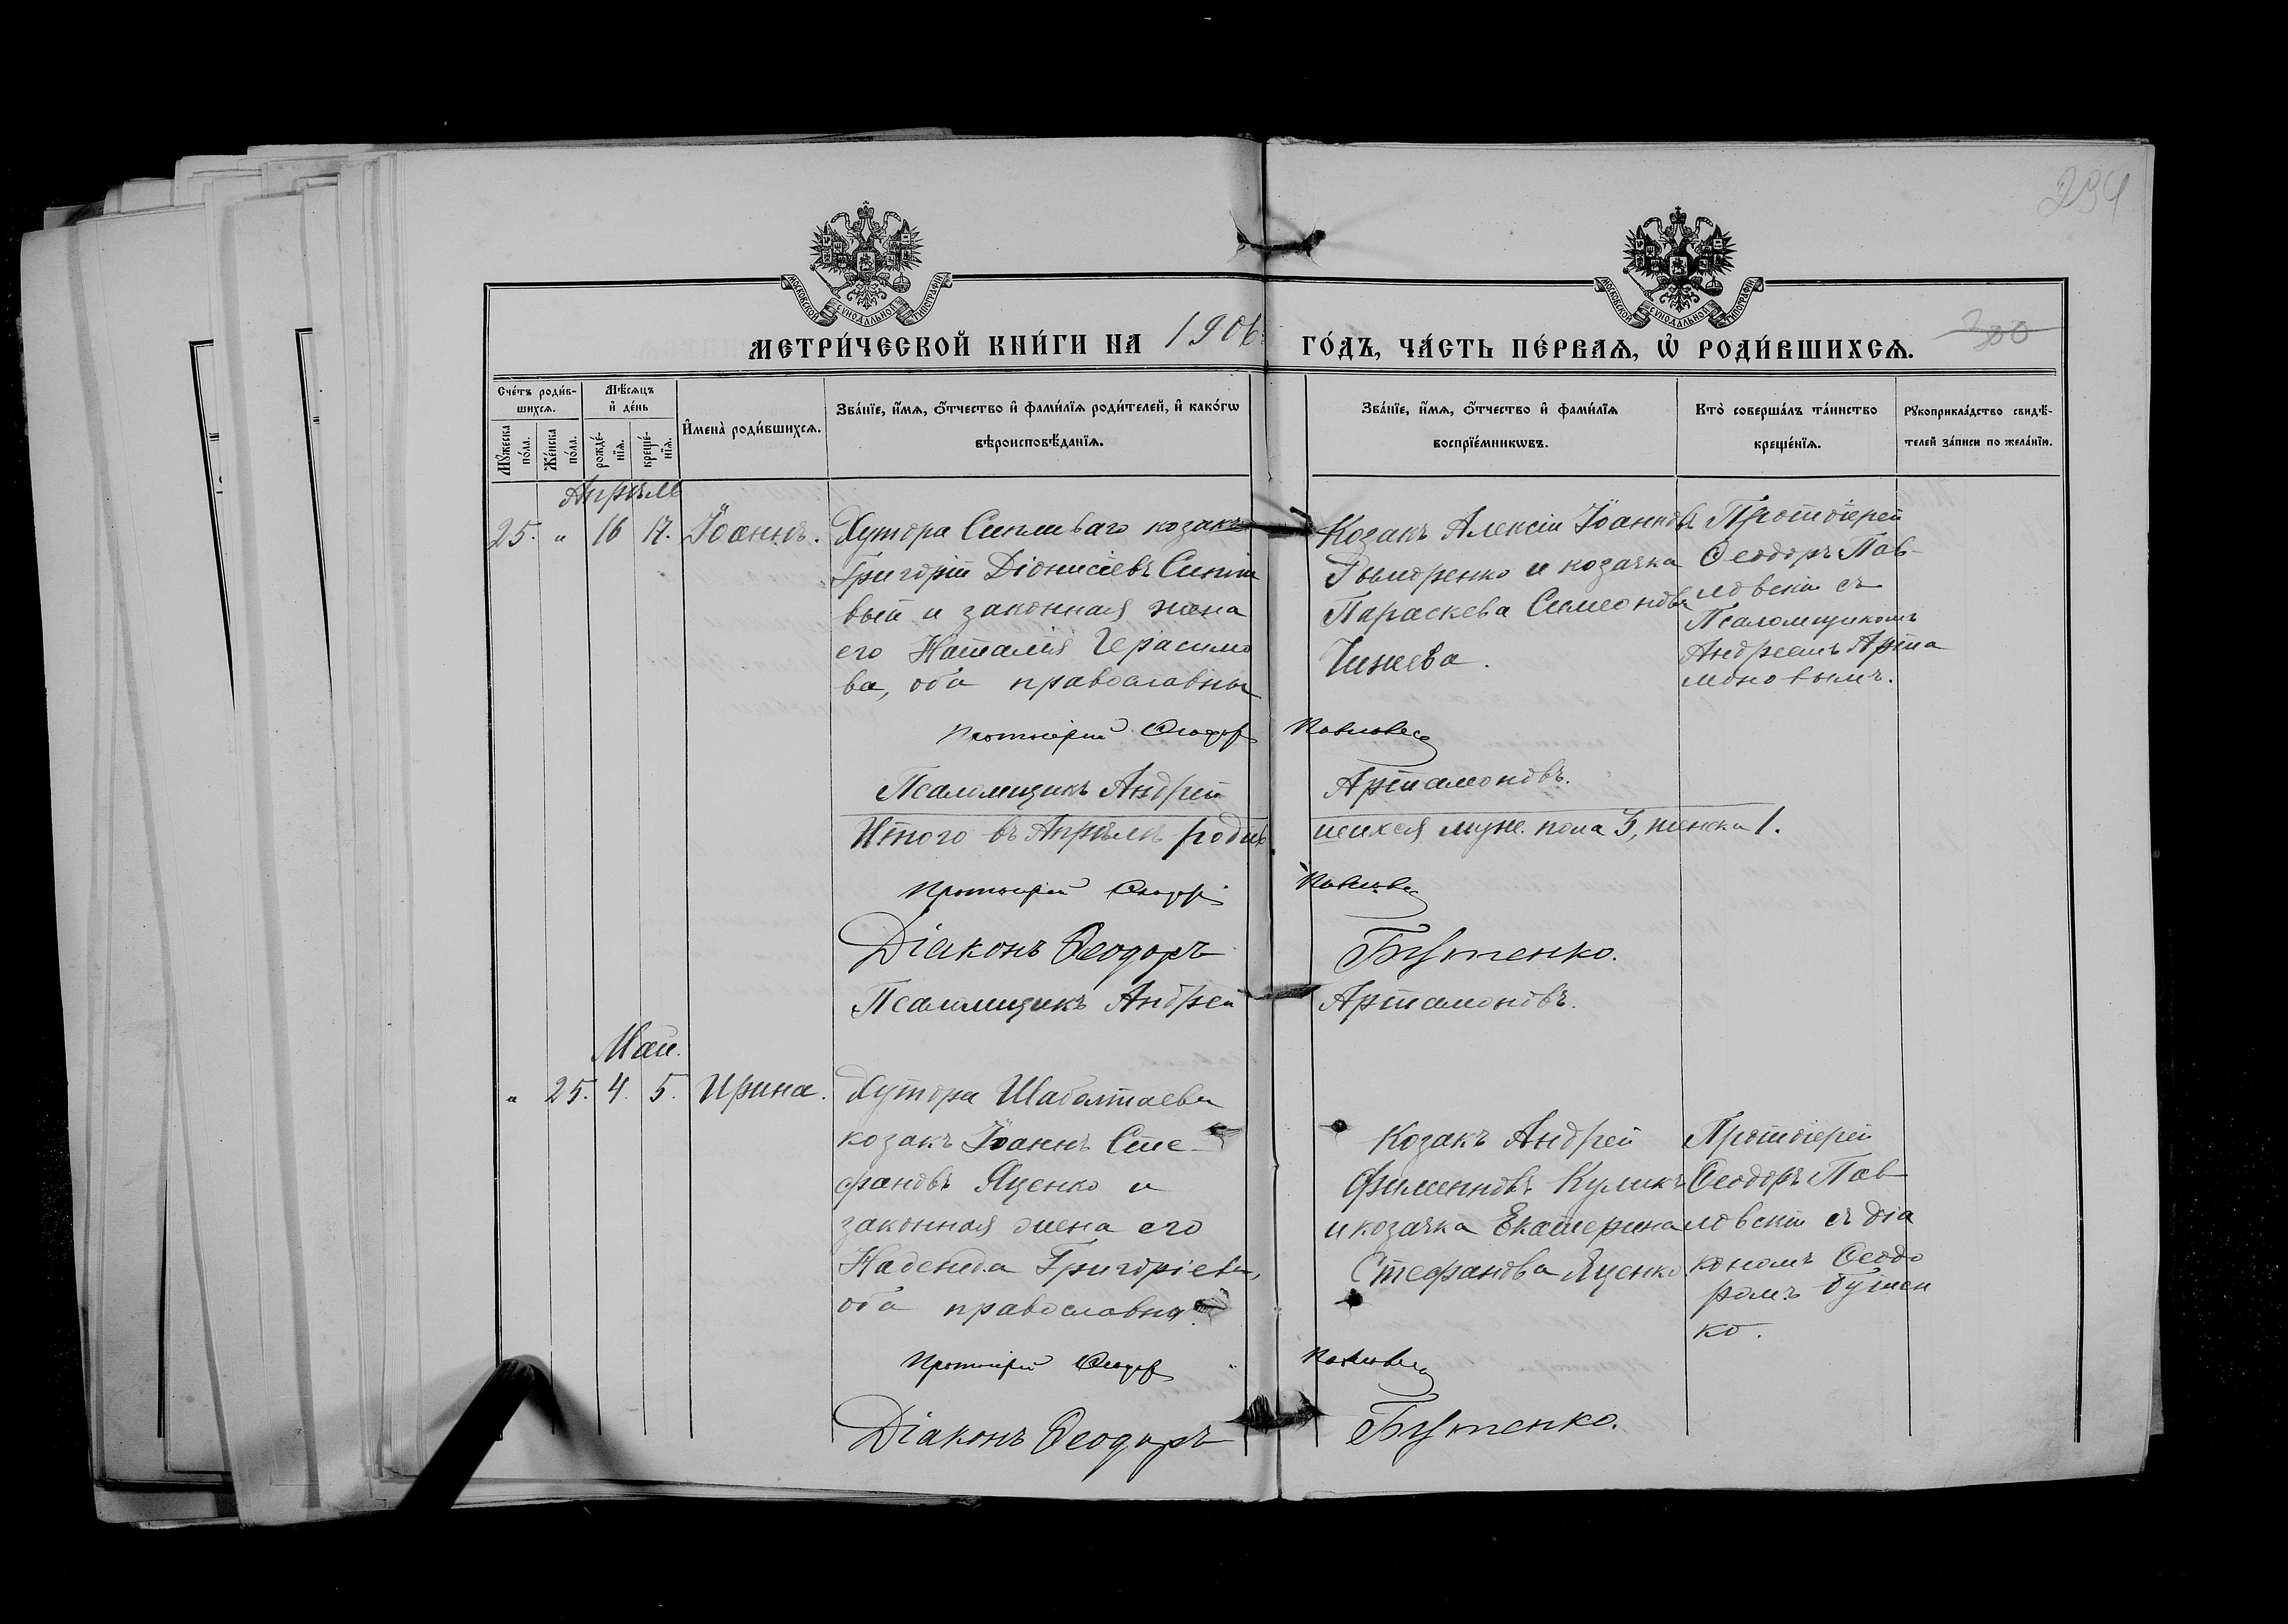 294
МОСКОВСКОЙ СѴНОДАЛЬНОЙ ТИПОГРАФІИ
МОСКОВСКОЙ СѴНОДАЛЬНОЙ ТИПОГРАФІИ
МЕТРИ́ЧЕСКОЙ КНИ́ГИ НА 1906 ГО́ДЪ, ЧА́СТЬ ПЕ́РВАѦ, Ѡ҆ РОДИ́ВШИХСѦ. 300
Сче́тъ роди́в-
шихсѧ.
Мꙋжеска по́ла.
Же́нска по́ла.
Мѣ́сѧцъ
и҆ де́нь
рожде́-
нїѧ.
креще́-
нїѧ.
И҆мена̀ роди́вшихсѧ.
Зва́нїе, и҆́мѧ, ѻ҆́тчество и҆ фами́лїѧ роди́телей, и҆ како́гѡ
вѣроисповѣ́данїѧ.
Зва́нїе, и҆́мѧ, ѻ҆́тчество и҆ фами́лїѧ
воспрїе́мникѡвъ.
Кто̀ соверша́лъ та́инство
креще́нїѧ.
Рꙋкоприкла́дство свидѣ́-
телей за́писи по жела́нїю.
Апрѣль
25. " 16 17. Іоаннъ.
Хутора Сипливаго козакъ
Григорій Діонисіевъ Сипли
вый и законная жена
его Наталія Герасимо
ва, оба православны
Козакъ Алексій Іоанновъ
Параскева Симеонова
Протоіерей
Ѳеодоръ Пав-
ловскій съ
Псаломщикомъ
Андреемъ Арта
моновымъ.
Протоіерей Ѳеодоръ Павловскі
Псаломщикъ Андрей Артамоновъ.
Итого въ Апрѣлѣ родив шихся муж. пола 3, женска 1.
Протоіерей Ѳеодоръ Павловскі
Діаконъ Ѳеодоръ Бутенко.
Псаломщикъ Андрей Артамоновъ.
Май.
" 25. 4. 5. Ирина.
Хутора Шаболтаева
козакъ Іоаннъ Сте-
фановъ Яценко и
законная жена его
Надежда Григоріева,
оба православны.
Козакъ Андрей
Филипповъ Куликъ
и козачка Екатерина
Стефанова Яценко.
Протоіерей
Ѳеодоръ Пав-
ловскій съ діа
кономъ Ѳеодо
ромъ Бутен
ко.
Протоіерей Ѳеодоръ Павловскі
Діаконъ Ѳеодоръ Бутенко.